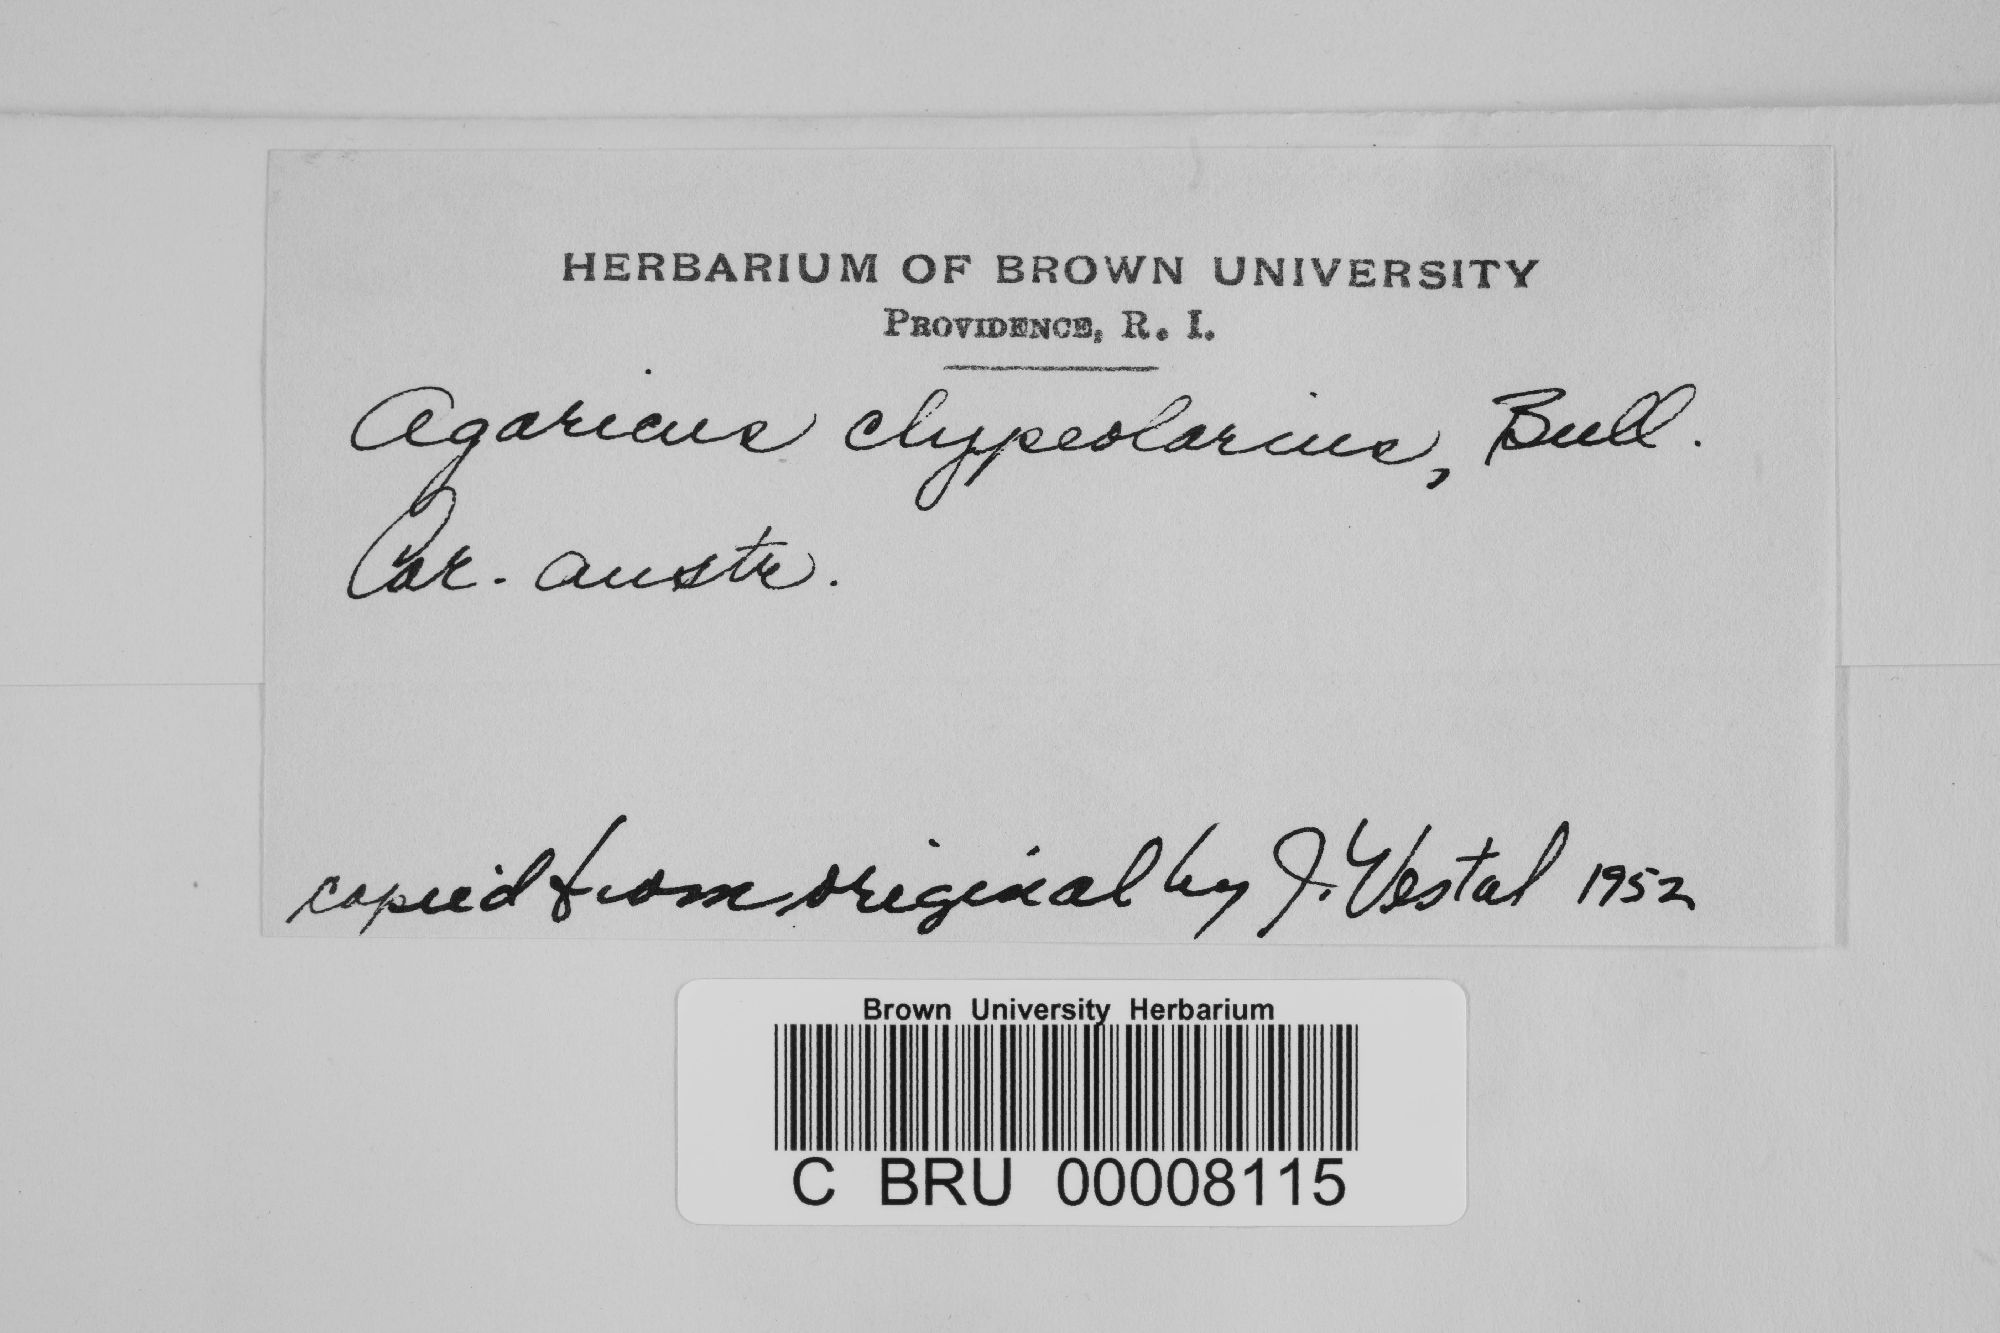 HERBARIUM OF BROWN UNIVERSITY
PROVIDENCE, R. I.
Agaricus clypeolarius, Bull.
Car. austr.
copied from original by J. Vestal 1952
Brown University Herbarium
C BRU 00008115